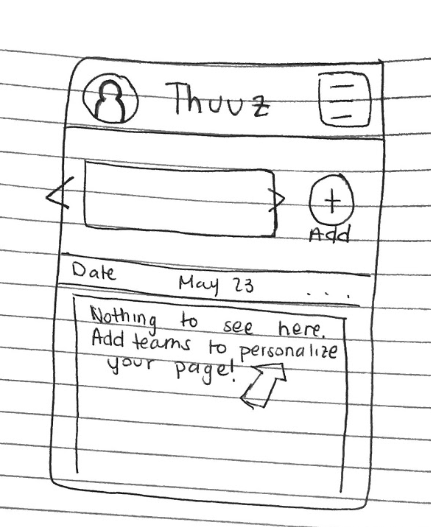 Thuuz
+
Add
Date May 23 ...
Nothing to see here.
Add teams to personalize
your page!